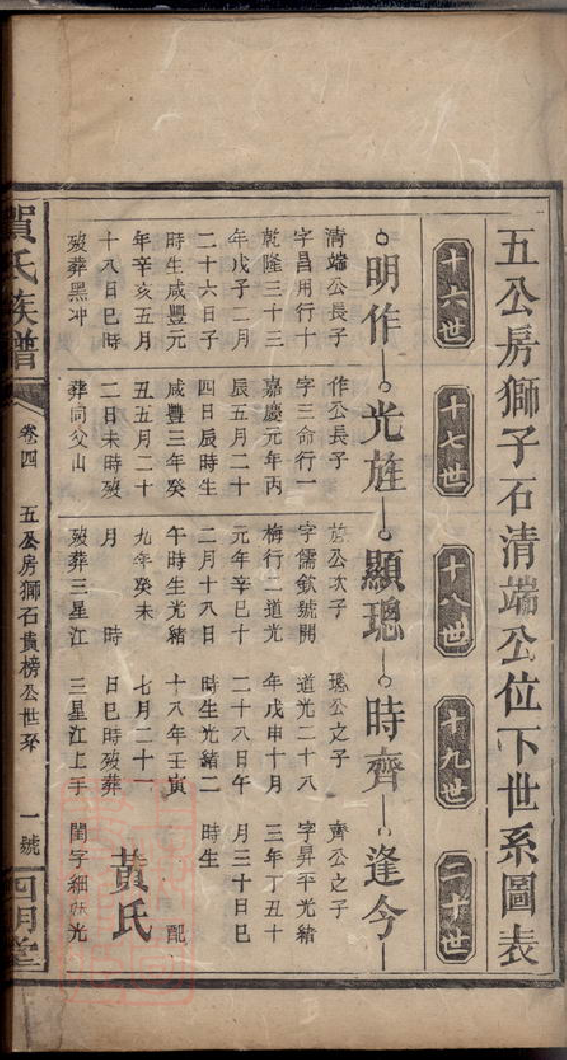 五公房獅子石清端公位下世系圖表
十六世
十七世
十八世
十九世
二十世
明作
光旌
顯璁
時齊
逢今
清端公長子
字昌用行十
乾隆三十三
年戊子二月
二十六日子
時生咸豐元
年辛亥五月
十八日巳時
歿葬黑冲
作公長子
字三命行一
嘉慶元年丙
辰五月二十
四日辰時生
咸豐三年癸
丑五月二十
二日未時歿
葬同父山
旌公次子
字儒欽號開
梅行二道光
元年辛巳十
二月十八日
午時生光緒
九年癸未
月 時
歿葬三星江
璁公之子
道光二十八
年戊申十月
二十八日午
時生光緒二
十八年壬寅
七月二十一
日巳時歿葬
三星江上手
齊公之子
字昇平光緒
三年丁丑十
月三十日巳
時生
配
黃氏
閨字細妖光
賀氏族譜
卷四
五公房獅石貴榜公世系
一號
四明堂